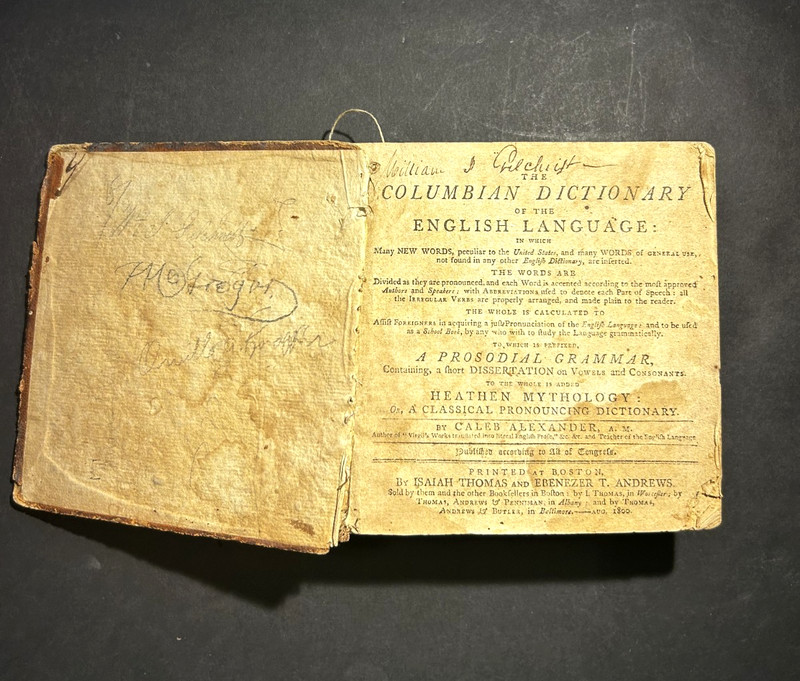 William Gilchrist
THE
COLUMBIAN DICTIONARY
OF THE
ENGLISH LANGUAGE:
IN WHICH
Many NEW WORDS, peculiar to the United States, and many WORDS of GENERAL USE,
not found in any other English Dictionary, are inserted.
THE WORDS ARE
Divided as they are pronounced, and each Word is accented according to the moſt approved
Authors and Speakers; with ABBREVIATIONS uſed to denote each Part of Speech: all
the IRREGULAR VERBS are properly arranged, and made plain to the reader.
THE WHOLE IS CALCULATED TO
Aſſiſt FOREIGNERS in acquiring a juſt Pronunciation of the Engliſh Language: and to be uſed
as a School Book, by any who wiſh to ſtudy the Language grammatically.
TO WHICH IS PREFIXED,
A PROSODIAL GRAMMAR,
Containing, a ſhort DISSERTATION on VOWELS and CONSONANTS.
TO THE WHOLE IS ADDED
HEATHEN MYTHOLOGY:
Or, A CLASSICAL PRONOUNCING DICTIONARY.
BY CALEB ALEXANDER, A. M.
Author of "Virgil's Works tranſlated into literal Engliſh Proſe," &c. &c. and Teacher of the Engliſh Language
Publiſhed according to Act of Congreſs.
PRINTED AT BOSTON,
BY ISAIAH THOMAS AND EBENEZER T. ANDREWS.
Sold by them and the other Bookſellers in Boſton; by I. THOMAS, in Worceſter; by
THOMAS, ANDREWS & PENNIMAN, in Albany; and by THOMAS,
ANDREWS & BUTLER, in Baltimore.—AUG. 1800.